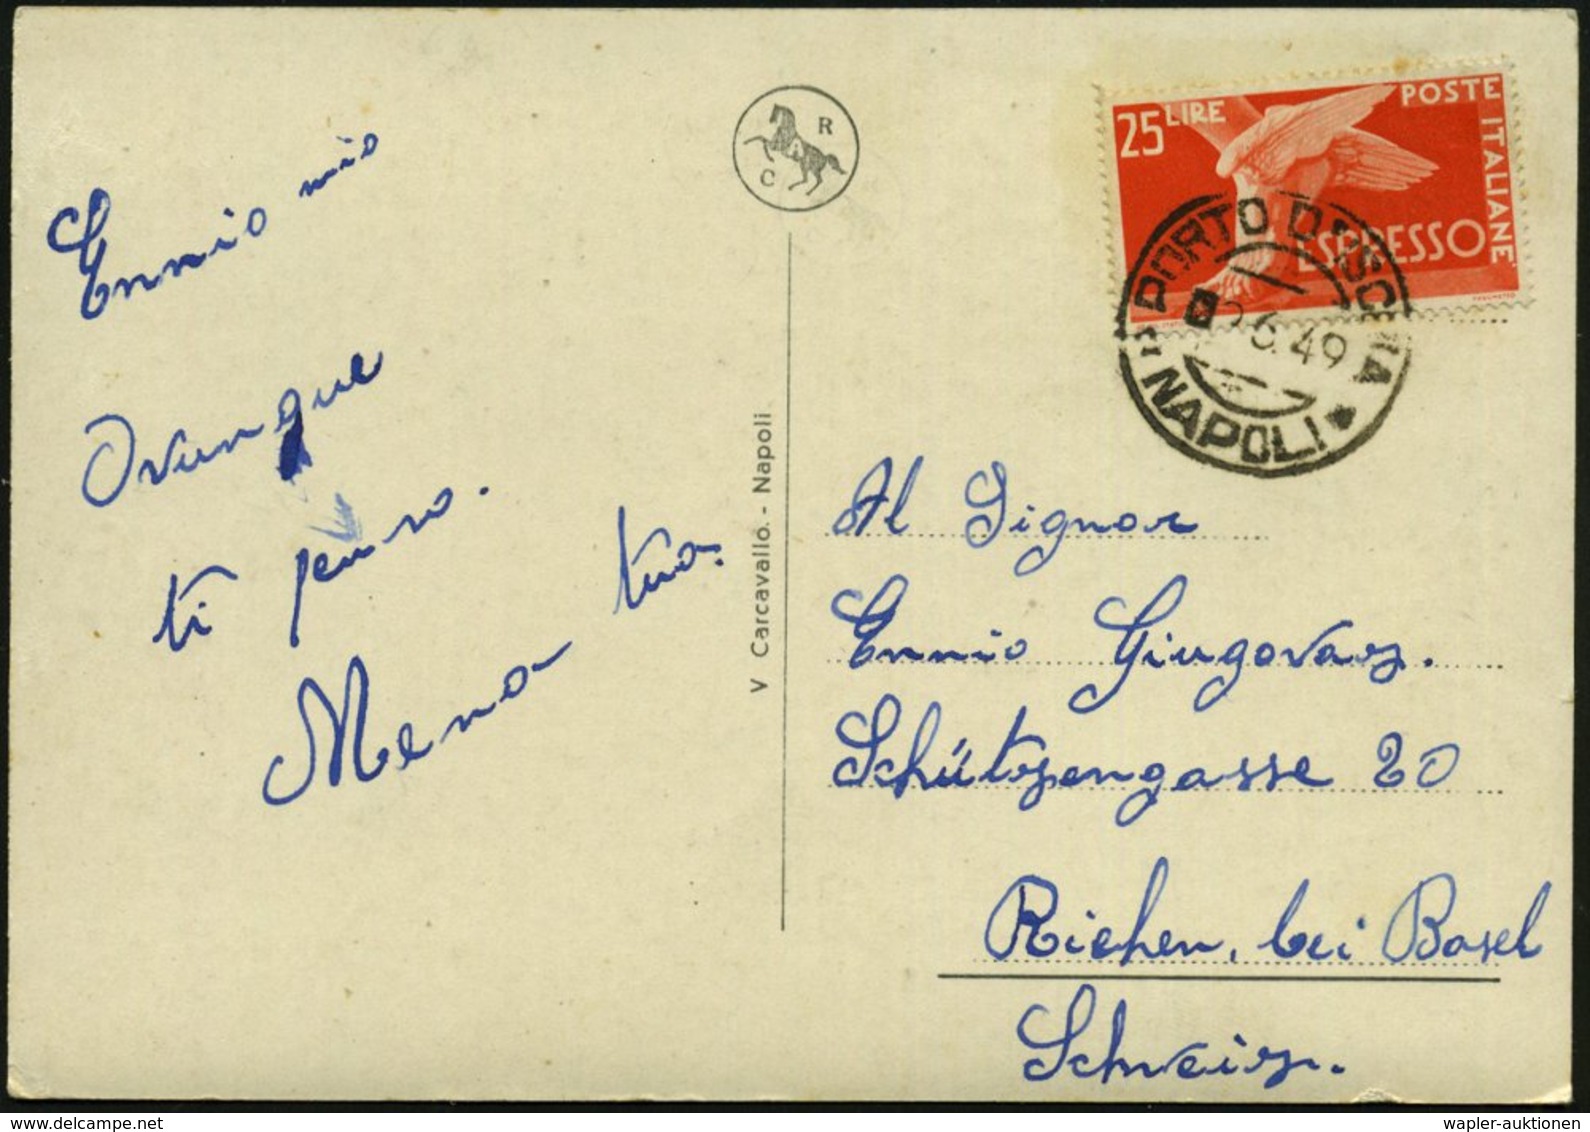 Ennio mio
Ovunque
ti penso.
Mena tua.
R
C
V Carcavallo. - Napoli
25 LIRE
POSTE ITALIANE
ESPRESSO
PORTO D'ISCHIA
6.49
NAPOLI
Al Signor
Ennio
Schützengasse 20
Riehen, bei Basel
Schweiz.
wapler-auktionen